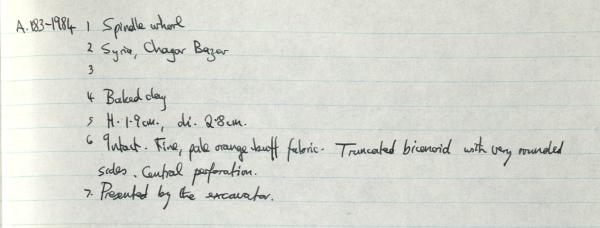 A.183-1984 1 Spindle whorl
2 Syria, Chagar Bazar
3
4 Baked clay
5 H. 1.9cm., di. 2.8cm.
6 Intact. Fine, pale orange buff fabric. Truncated biconoid with very rounded
sides. Central perforation.
7. Presented by the excavator.